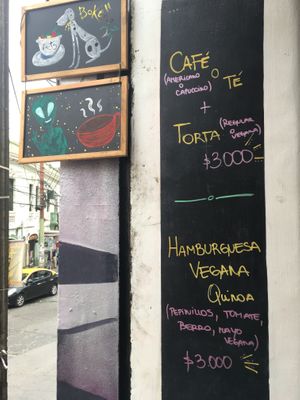 "Boke"
CAFÉ
(AMERICANO
O
CAPUCCINO)
O
TÉ
+
TORTA
(REGULAR
O
VEGANA)
$3000
HAMBURGUESA
VEGANA
QUINOA
(PEPINILLOS, TOMATE,
BERRO, MAYO
VEGANA)
$3.000